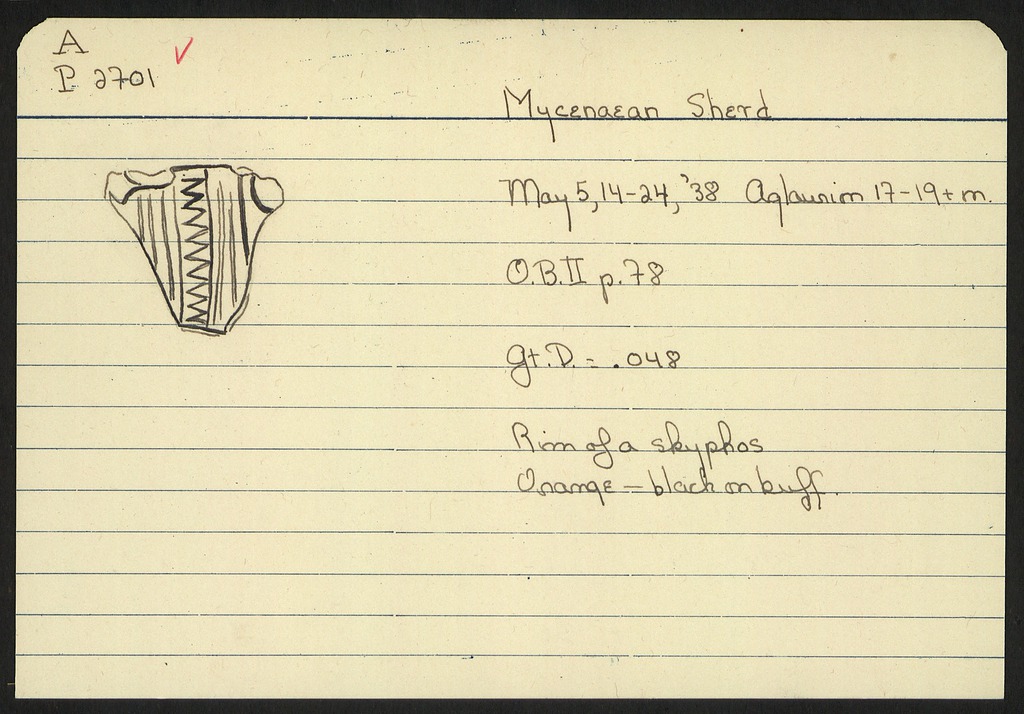 A
P 2701
Mycenaean Sherd
May 5, 14-24, '38 Aglaurion 17-19+m.
O.B.II p.78
Gt.D. = .048
Rim of a skyphos
Orange - black on buff.